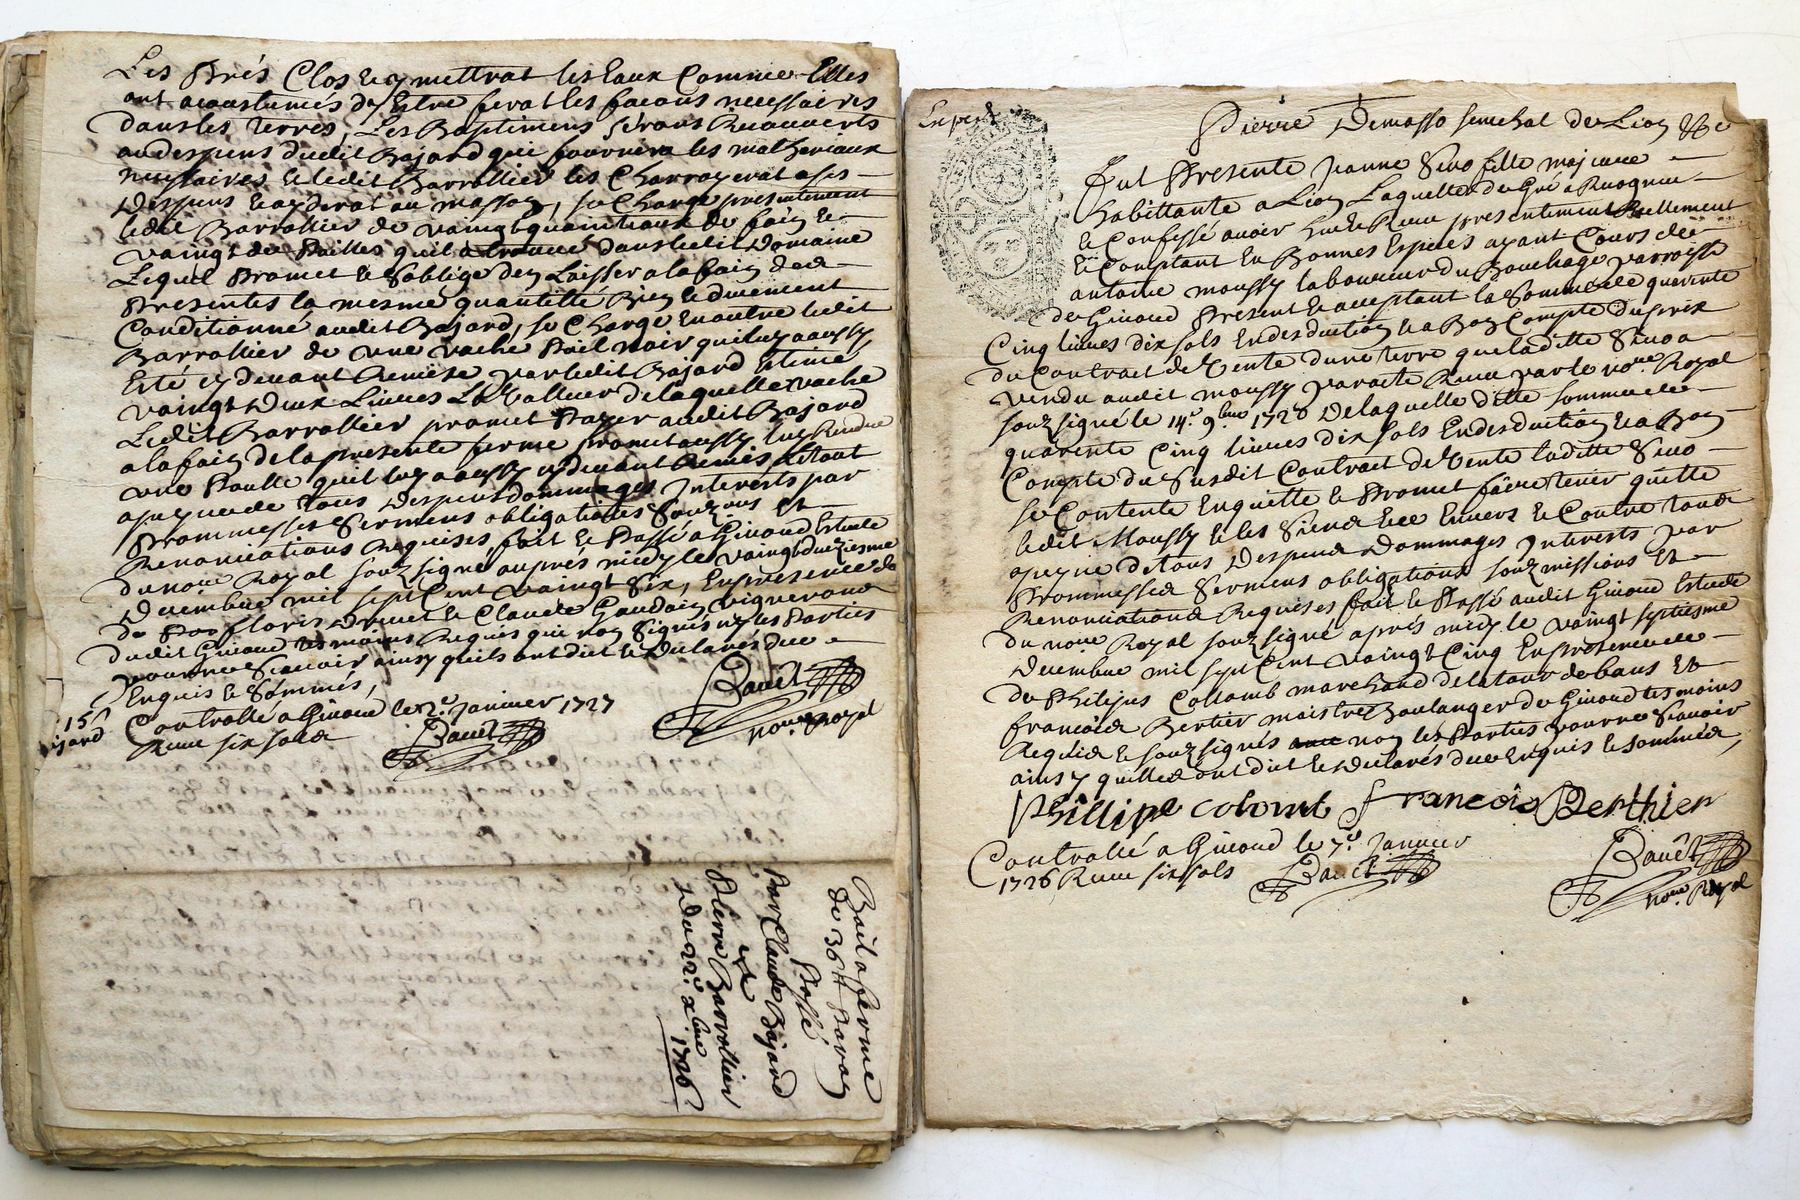 Les Prés Clos et y mettrat les Eaux Comme Elles
ont acoustumés dy Estre ferat les facons necessaires
dans les terres, Les Baptimens serons Recouverts
au despens dudit Bajard qui fournira les matheriaux
necessaires et ledit Barrollier les Charroyerat a ses
despens et ayderat au masson, se Charge presentement
ledit Barrollier de vaingt quaintaux de foin et
vaingt de Pailles quil a trouvé dans ledit Domaine
Lequel Promet et soblige den Laisser a la fain des
Presentes la mesme quantité Bien et duement
Conditionné audit Bajard, se Charge En outre ledit
Barrollier de une vache Poil noir quil luy a aussy
Esté cy devant Remise par ledit Bajard Estimé
vaingt deux Livres La valleur de laquelle vache
Ledit Barrollier promet Payer audit Bajard
a la fain de la presente ferme promet aussy luy Rendre
une quil luy a aussy cy devant Remis le tout
a peyne de tous despens dommages Interests par
Promesses Sermens obligations Souzmis et
Renonciations Requises fait et Passé a Givord Estude
du noire Royal souz signé aprés midy le vaingt deuziesme
Decembre mil sept Cent vaingt Six, En presence de
de Drevet et Claude Gaudain vignerons
dudit Givord tesmoins Requis qui non Signés ny les Parties
pour ne Scavoir ainsy quils ont dict et declarés de ce
Enquis et Sommés,
Bauet
nore. Royal
15
Bajard
Controllé a Givord le 2e. Janvier 1727
Receu six solds
Bauet
Bail a ferme
de 36 tt Par an
Passé
Par Claude Bajard
et
Pierre Barrollier
Du 22e. xbre
1726
Exped
Pierre Demasso senechal de Lion &c
Fut Presente Jeanne Sivo fille majeure
habittante a Lion Laquelle de Gré a Recogneu
et Confessé avoir heu et Receu presentement Reellement
et Comptant En Bonnes Espéces ayant Cours de
antoine moussy laboureur du Bouchage parroisse
de Givord Present et acceptant la Somme de quarente
Cinq livres dix sols En desduction et a Bon Compte du prix
du Contract de Vente dune terre que laditte Sivo a
vendu audit moussy par acte Receu par le nore. Royal
souz signé le 14e. 9bre 1720 De laquelle ditte somme de
quarente Cinq livres dix sols En desduction et a Bon
Compte du Susdit Contract de Vente laditte Sivo
se Contente En quitte et Promet faire tenir quitte
ledit Moussy et les Siens Envers et Contre tous
a peyne de tous despens dommages Interests par
Promesses Sermens obligations souzmissions et
Renonciations Requises fait et Passé audit Givord Estude
du nore Royal souz signé aprés midy le vaingt septiesme
Decembre mil sept Cent vaingt Cinq En presence de
de Philipes Collomb marchand de la tour de bans et
francois Bertier maistre Boulanger de Givord tesmoins
Requis et souz signés non les Parties pour ne Scavoir
ainsy quelles ont dict et declarés de ce Enquis et sommés,
Phillipe colomb francois Berthier
Controllé a Givord le 7e. Janvier
1726 Receu six sols
Bauet
Bauet
nore. Royal